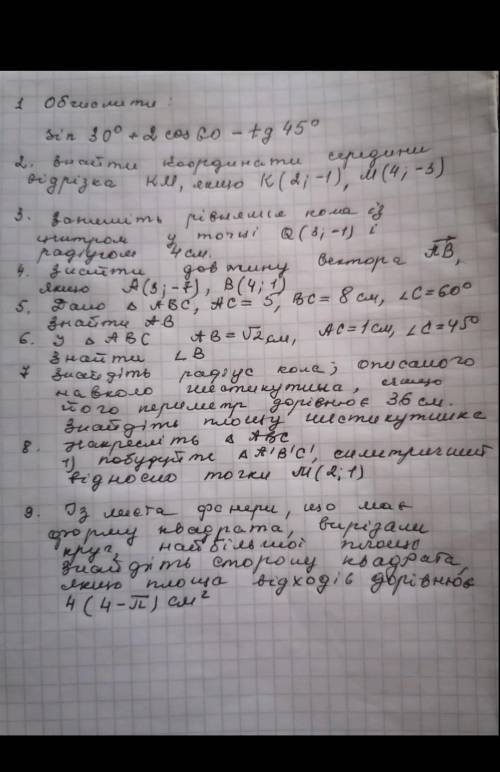 1 Обчислити:
sin 30° + 2 cos 60 - tg 45°
2. Знайти координати середини
відрізка КМ, якщо К(2; -1), М(4; -3)
3. Запишіть рівняння кола із
центром у точці Q(3; -1) і
радіусом 4 см.
4. Знайти довжину вектора AB,
якщо А(3; -7), В(4; 1)
5. Дано △ ABC, AC = 5, BC = 8 см, ∠C = 60°
Знайти AB
6. У △ ABC AB = √2 см, AC = 1 см, ∠C = 45°
Знайти ∠B
7 Знайдіть радіус кола, описаного
навколо шестикутника, якщо
його периметр дорівнює 36 см.
Знайдіть площу шестикутника
8. Накресліть △ ABC
1) побудуйте △ A'B'C', симетричний
відносно точки М(2; 1)
9. Із листа фанери, що має
форму квадрата, вирізали
круг, найбільшої площі
Знайдіть сторону квадрата,
якщо площа відходів дорівнює
4(4-π) см²